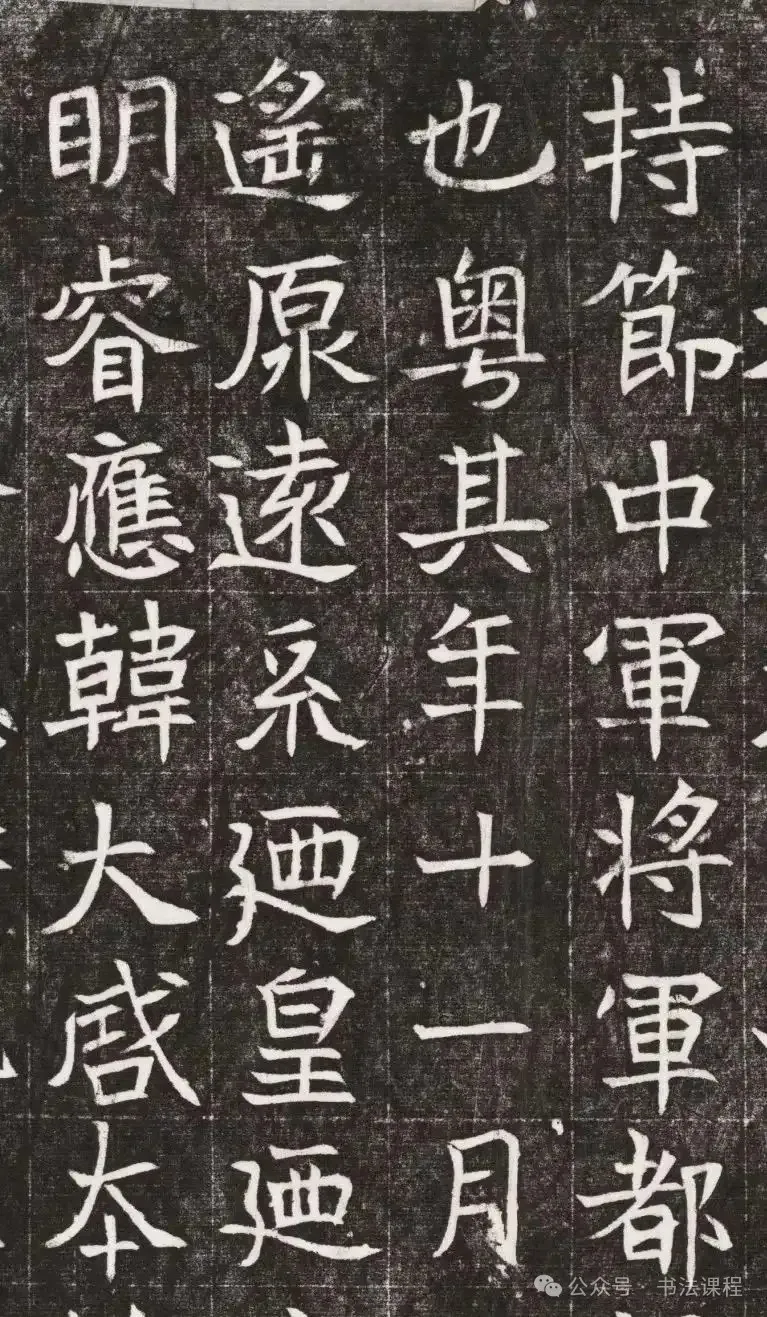 持節中軍将軍都
也粤其年十一月
遙原遠系廼皇廼
眀睿應韓大啟夲
公众号 · 书法课程